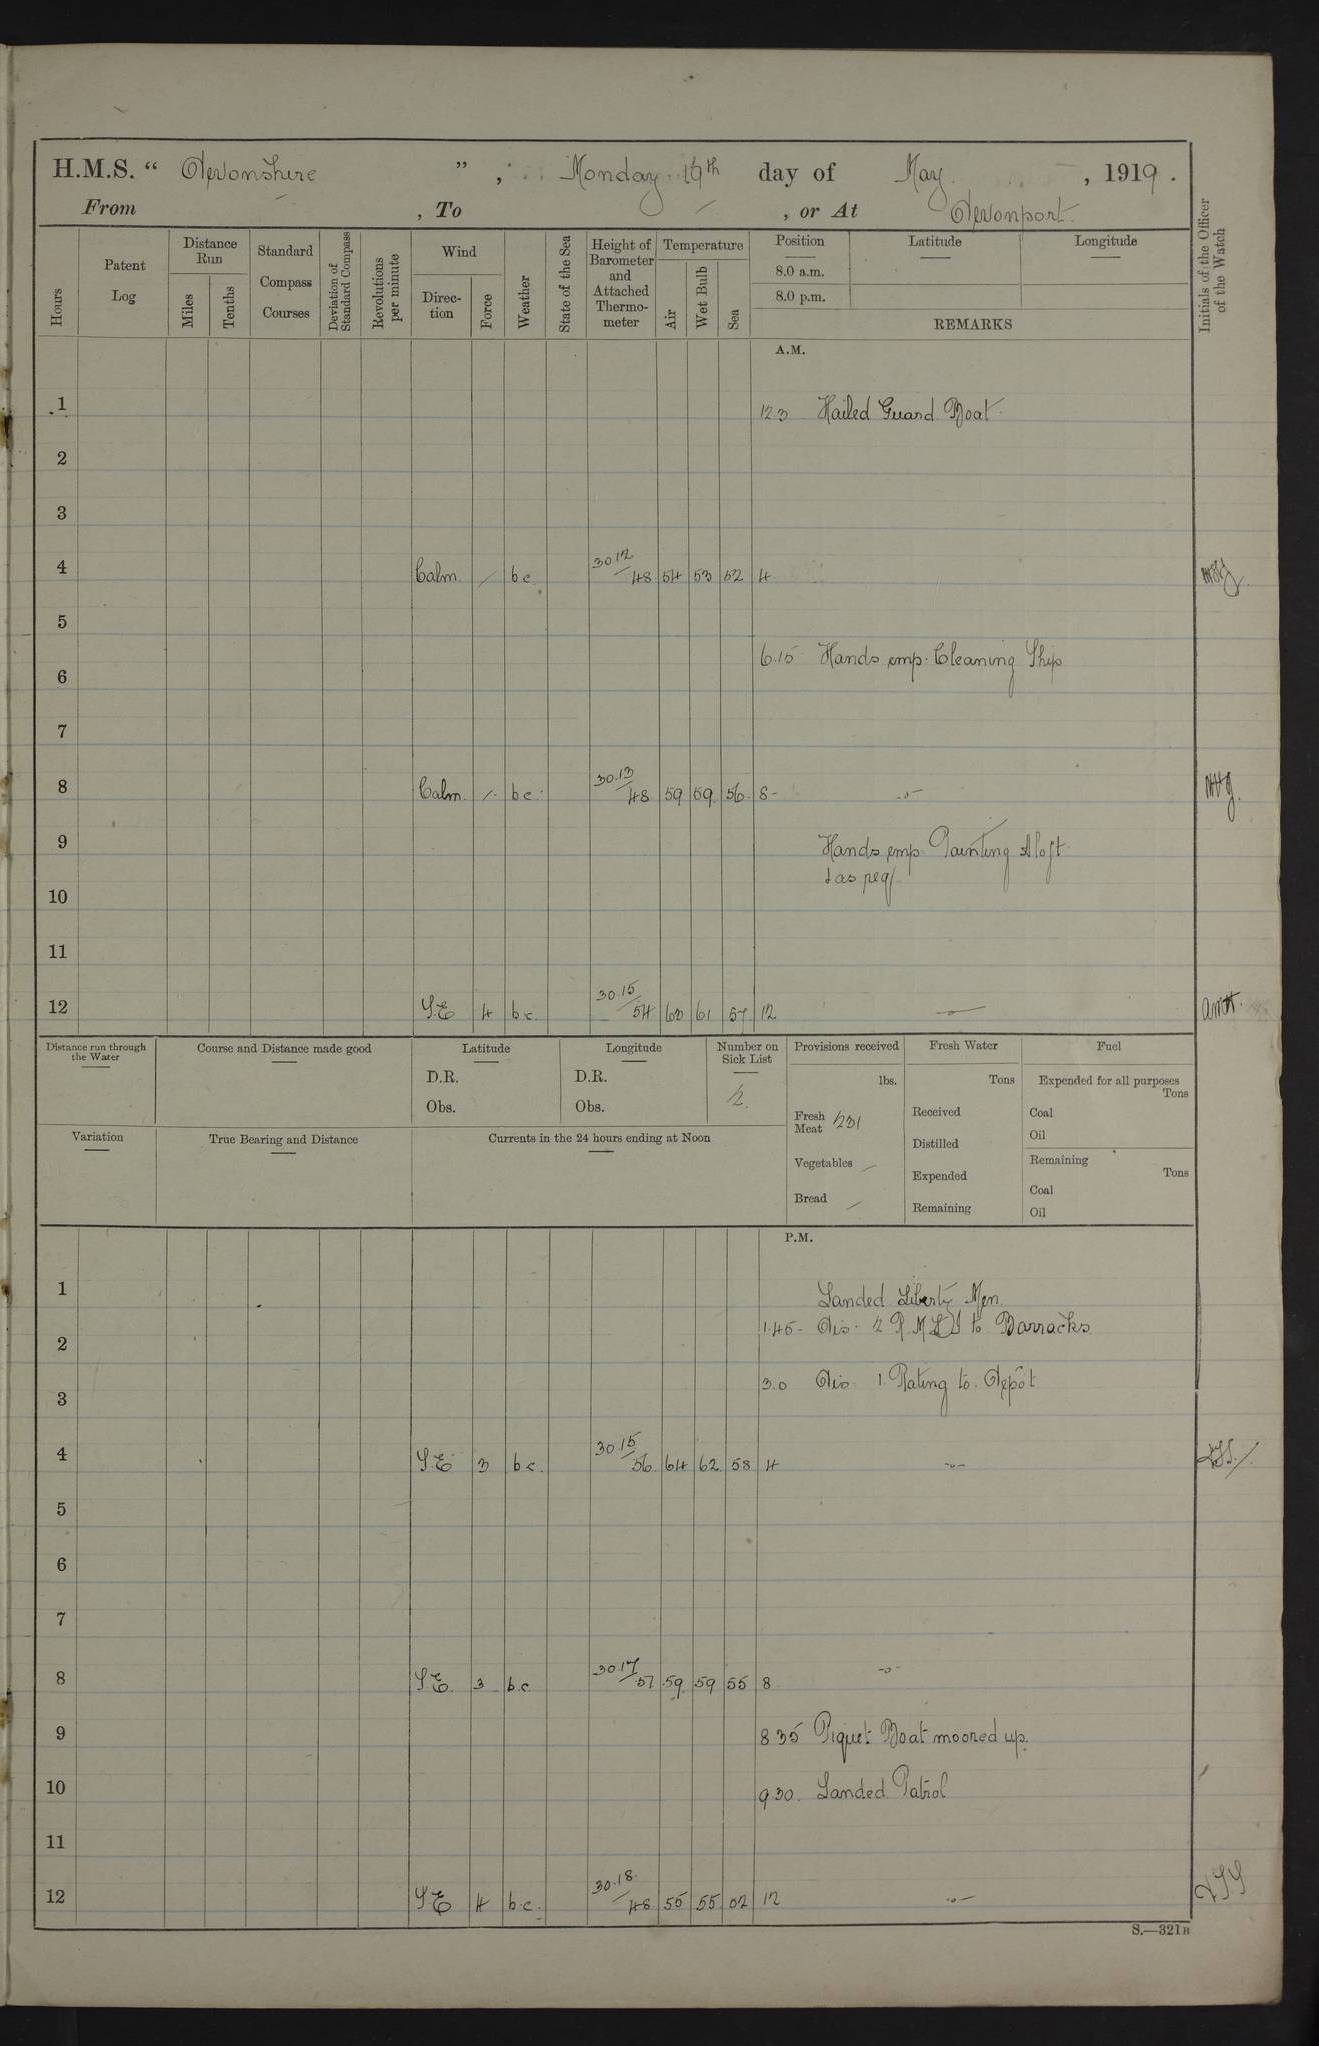 H.M.S. " Devonshire ", Monday 19th day of May, 1919.
From , To , or At Devonport.
Hours
Patent Log
Distance Run
Miles
Tenths
Standard Compass Courses
Deviation of Standard Compass
Revolutions per minute
Wind
Direction
Force
Weather
State of the Sea
Height of Barometer and Attached Thermometer
Temperature
Air
Wet Bulb
Sea
Position
8.0 a.m.
8.0 p.m.
Latitude
Longitude
REMARKS
Initials of the Officer of the Watch
A.M.
1 12.3 Hailed Guard Boat.
2
3
4 Calm / bc 30.12/48 54 53 52 4
5
6.15 Hands emp. Cleaning Ship
6
7
8 Calm / bc 30.13/48 59 59 56 8 -
9 Hands emp. Painting Aloft
& as req/.
10
11
12 S.E 4 b.c. 30.15/54 60 61 57 12
Distance run through the Water
Course and Distance made good
Latitude
D.R.
Obs.
Longitude
D.R.
Obs.
Number on Sick List
2
Provisions received
lbs.
Fresh Meat 231
Vegetables
Bread
Fresh Water
Tons
Received
Distilled
Expended
Remaining
Fuel
Expended for all purposes
Tons
Coal
Oil
Remaining
Tons
Coal
Oil
Variation
True Bearing and Distance
Currents in the 24 hours ending at Noon
P.M.
1 Landed Liberty Men.
1.45 - Dis. 2 R.M.L.I to Barracks
2
3.0 Dis. 1 Rating to Depôt
3
4 S.E. 3 b.c. 30.15/56 64 62 58 4
5
6
7
8 S.E. 3 b.c. 30.17/57 59 59 55 8
9 8 35 Piquet Boat moored up.
10 9.30. Landed Patrol
11
12 S.E 4 b.c. 30.18/48 55 55 52 12
S.—321B